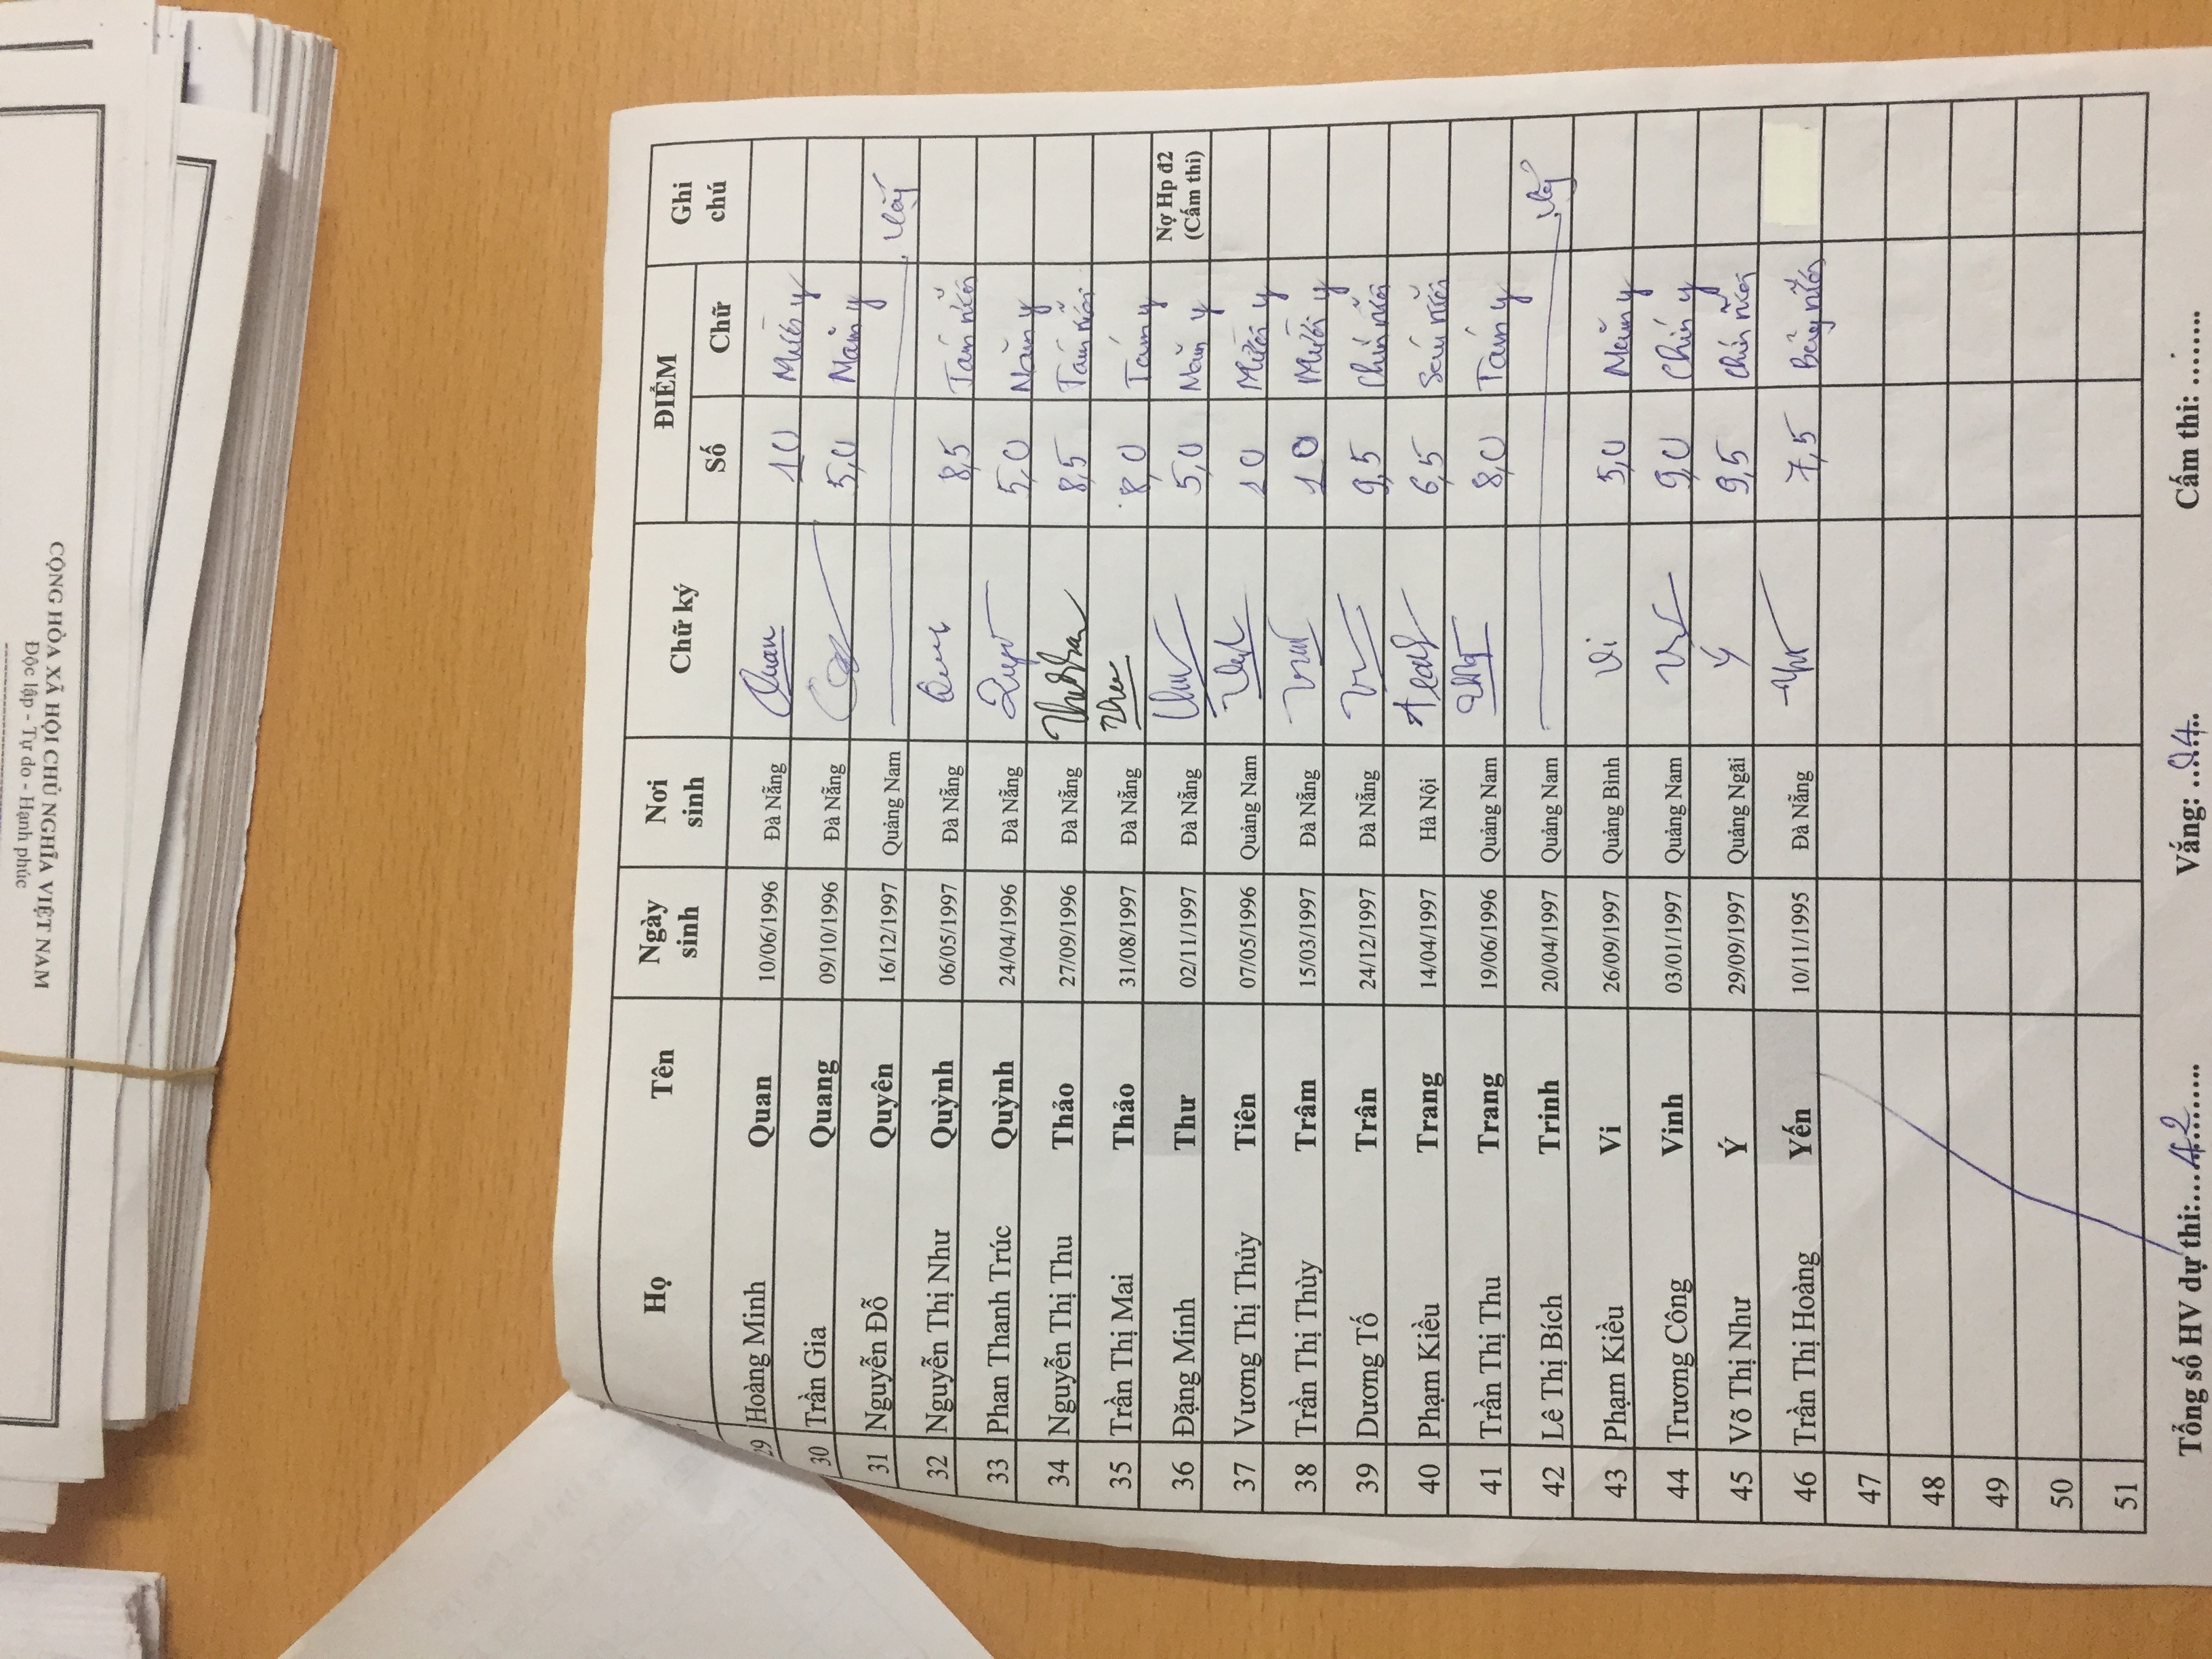 CỘNG HÒA XÃ HỘI CHỦ NGHĨA VIỆT NAM
Độc lập - Tự do - Hạnh phúc
Họ Tên Ngày sinh Nơi sinh Chữ ký ĐIỂM Ghi chú
Số Chữ
29 Hoàng Minh Quan 10/06/1996 Đà Nẵng Quan 10 Mười y
30 Trần Gia Quang 09/10/1996 Đà Nẵng 5,0 Năm y
31 Nguyễn Đỗ Quyên 16/12/1997 Quảng Nam Vắng
32 Nguyễn Thị Như Quỳnh 06/05/1997 Đà Nẵng 8,5 Tám rưỡi
33 Phan Thanh Trúc Quỳnh 24/04/1996 Đà Nẵng 5,0 Năm y
34 Nguyễn Thị Thu Thảo 27/09/1996 Đà Nẵng 8,5 Tám rưỡi
35 Trần Thị Mai Thảo 31/08/1997 Đà Nẵng 8,0 Tám y
36 Đặng Minh Thư 02/11/1997 Đà Nẵng 5,0 Năm y Nợ Hp đ2 (Cấm thi)
37 Vương Thị Thủy Tiên 07/05/1996 Quảng Nam 10 Mười y
38 Trần Thị Thùy Trâm 15/03/1997 Đà Nẵng 10 Mười y
39 Dương Tố Trân 24/12/1997 Đà Nẵng 9,5 Chín rưỡi
40 Phạm Kiều Trang 14/04/1997 Hà Nội 6,5 Sáu rưỡi
41 Trần Thị Thu Trang 19/06/1996 Quảng Nam 8,0 Tám y
42 Lê Thị Bích Trinh 20/04/1997 Quảng Nam Vắng
43 Phạm Kiều Vi 26/09/1997 Quảng Bình Vi 5,0 Năm y
44 Trương Công Vinh 03/01/1997 Quảng Nam 9,0 Chín y
45 Võ Thị Như Ý 29/09/1997 Quảng Ngãi Ý 9,5 Chín rưỡi
46 Trần Thị Hoàng Yến 10/11/1995 Đà Nẵng 7,5 Bảy rưỡi
47
48
49
50
51
Tổng số HV dự thi:....42.......... Vắng: ...04... Cấm thi: .......